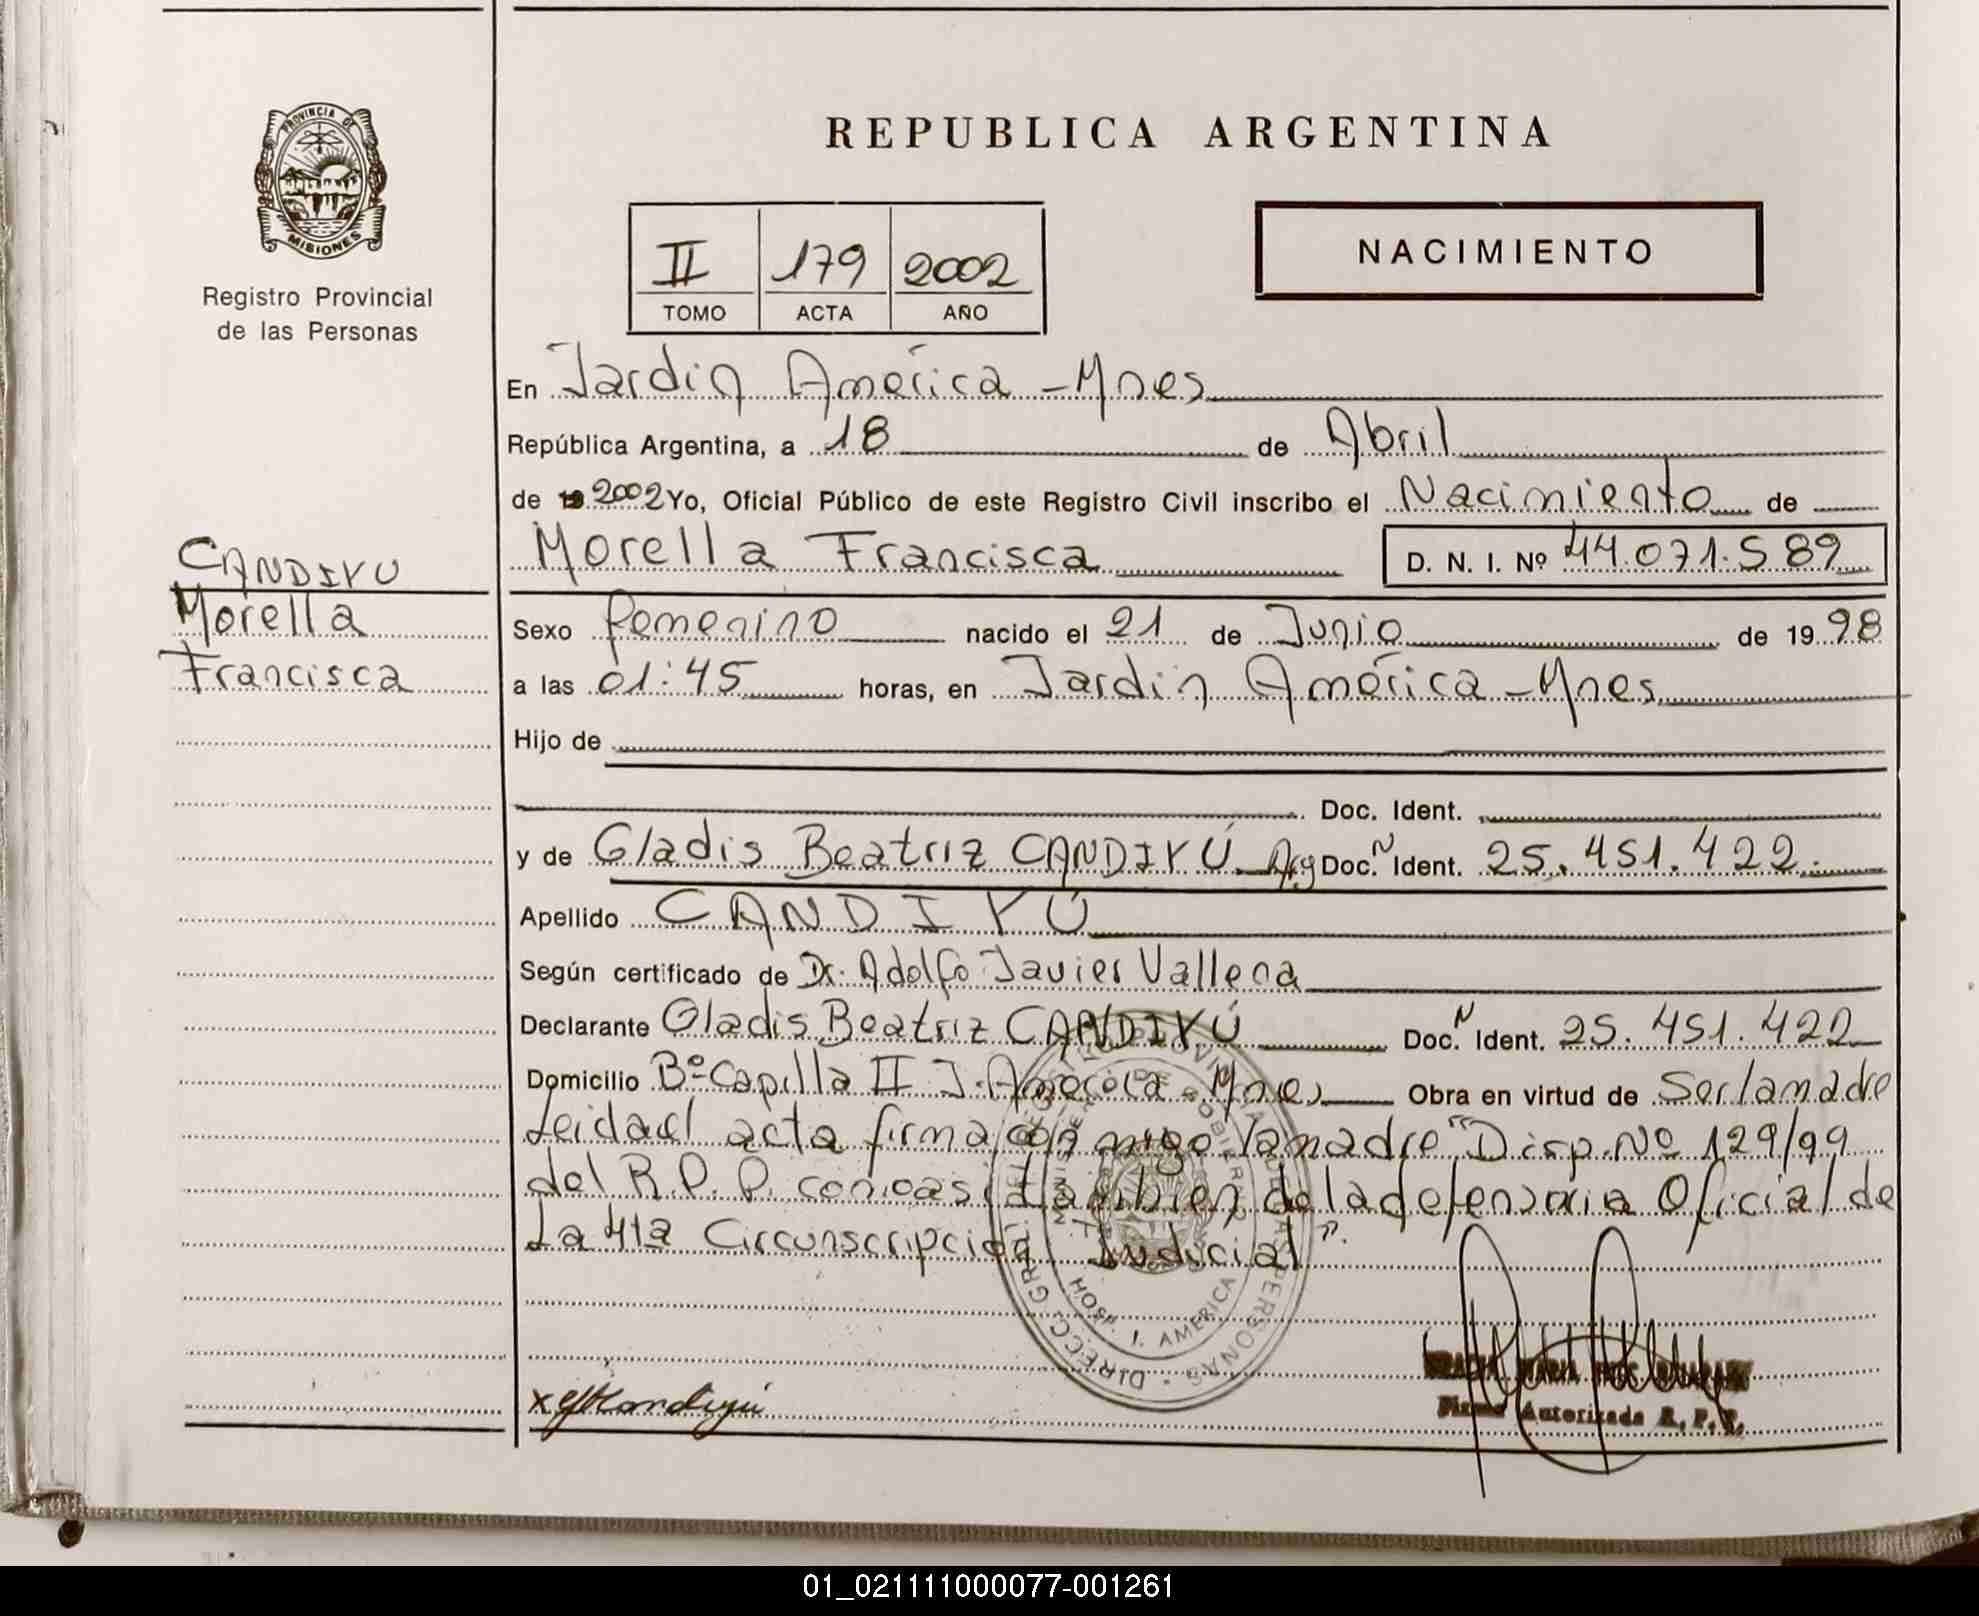 REPUBLICA ARGENTINA
PROVINCIA DE
MISIONES
Registro Provincial
de las Personas
II 179 2002
TOMO ACTA AÑO
NACIMIENTO
En Jardin América - Mnes
República Argentina, a 18 de Abril
de 19 2002 Yo, Oficial Público de este Registro Civil inscribo el Nacimiento de
Morella Francisca D. N. I. Nº 44.071.589
CANDIYU
Morella
Francisca
Sexo femenino nacido el 21 de Junio de 19 98
a las 01:45 horas, en Jardin América - Mnes
Hijo de
Doc. Ident.
y de Gladis Beatriz CANDIYÚ Arg Doc. N Ident. 25.451.422
Apellido CANDIYÚ
Según certificado de Dr. Adolfo Javier Vallena
Declarante Gladis Beatriz CANDIYÚ Doc. N Ident. 25.451.422
Domicilio Bº Capilla II J. América Mnes Obra en virtud de Ser la madre
Leida el acta firma con migo la madre "Disp. Nº 129/99
del R.P.P. como asi tambien de la defensoria Oficial de
La 4ta Circunscripcion Juducial".
DIRECC. GRAL. DEL REG. PROVINCIAL DE LAS PERSONAS
MINISTERIO DE GOBIERNO
HOSP. J. AMERICA
x GBCandiyú
MARIA
Firma Autorizada R.P.P.
01_021111000077-001261